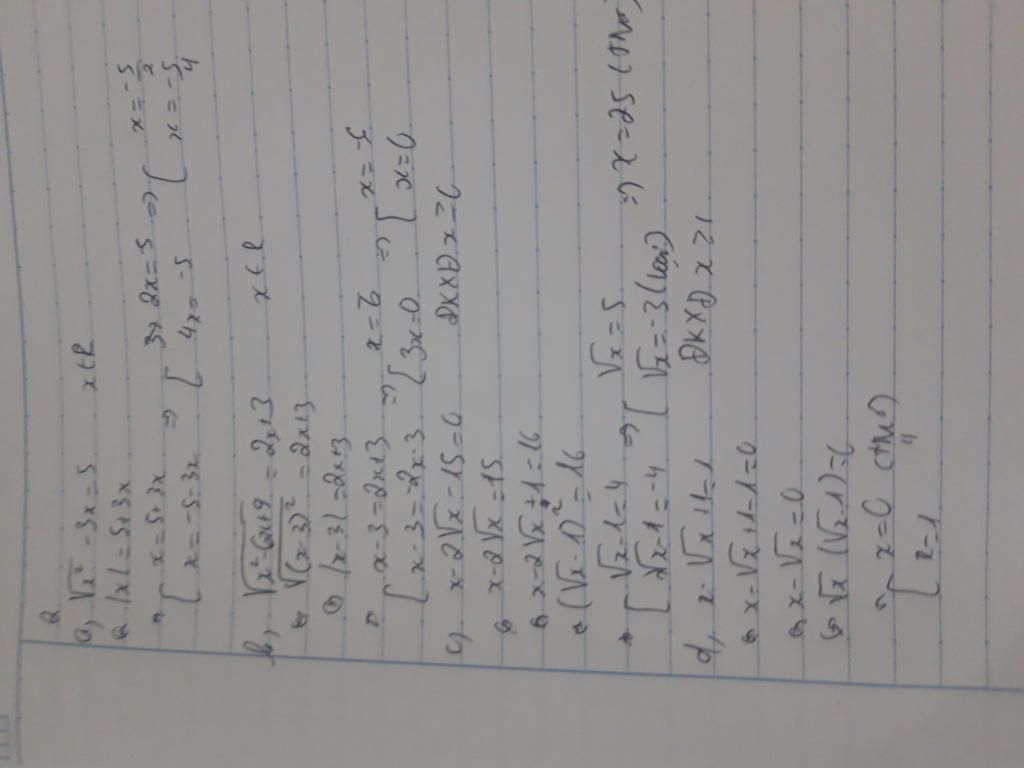 2
a, √x² - 3x = 5 x ∈ R
⇔ |x| = 5 + 3x
⇒ [ x = 5 + 3x ⇒ [ 2x = -5 ⇒ [ x = -5/2
[ x = -5 - 3x [ 4x = -5 [ x = -5/4
b, √x² - 6x + 9 = 2x + 3 x ∈ R
⇔ √(x - 3)² = 2x + 3
⇔ |x - 3| = 2x + 3
⇒ [ x - 3 = 2x + 3 ⇒ [ x = 6 ⇒ [ x = -6
[ x - 3 = -2x - 3 [ 3x = 0 [ x = 0
c, x - 2√x - 15 = 0 ĐKXĐ x ≥ 0
⇔ x - 2√x = 15
⇔ x - 2√x + 1 = 16
⇔ (√x - 1)² = 16
⇒ [ √x - 1 = 4 ⇒ [ √x = 5 ⇒ x = 25 (tm)
[ √x - 1 = -4 [ √x = -3 (loại)
d, x - √x + 1 = 1 ĐKXĐ x ≥ 1
⇔ x - √x + 1 - 1 = 0
⇔ x - √x = 0
⇔ √x (√x - 1) = 0
⇒ [ x = 0 (tm)
[ x = 1 "